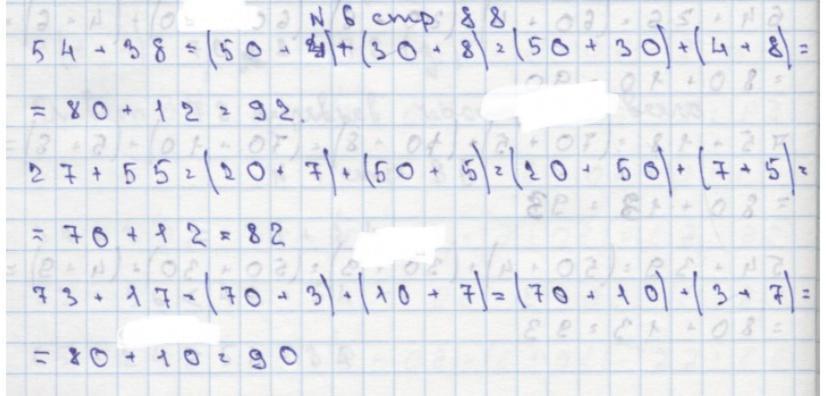 N 6 стр 88
54 + 38 = (50 + 4) + (30 + 8) = (50 + 30) + (4 + 8) =
= 80 + 12 = 92.
27 + 55 = (20 + 7) + (50 + 5) = (20 + 50) + (7 + 5) =
= 70 + 12 = 82
73 + 17 = (70 + 3) + (10 + 7) = (70 + 10) + (3 + 7) =
= 80 + 10 = 90